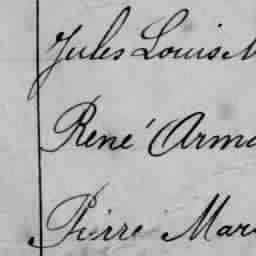 Jules Louis M
René Arma
Pierre Mari